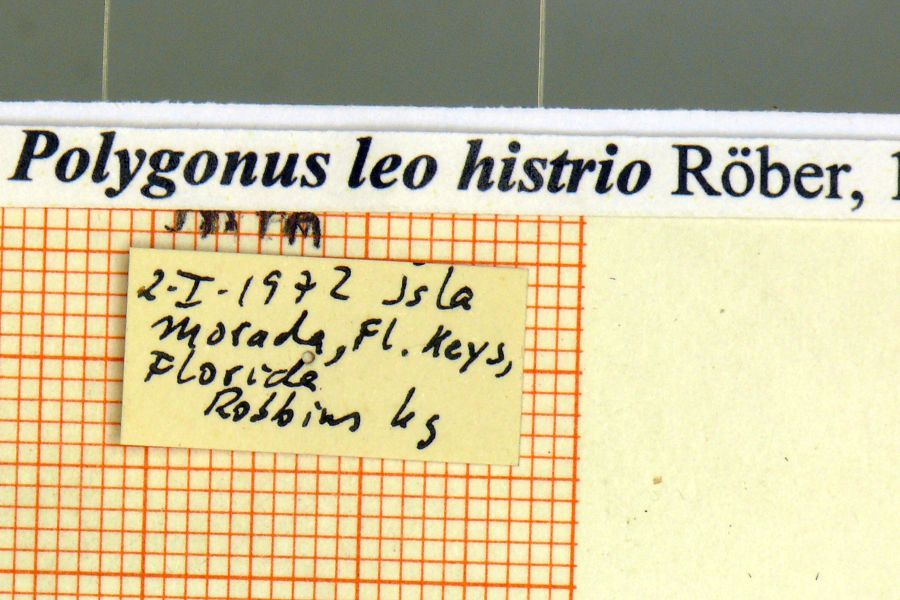 Polygonus leo histrio Röber,
2-I-1972 Isla
Morada, Fl. Keys,
Florida
Robbins lg